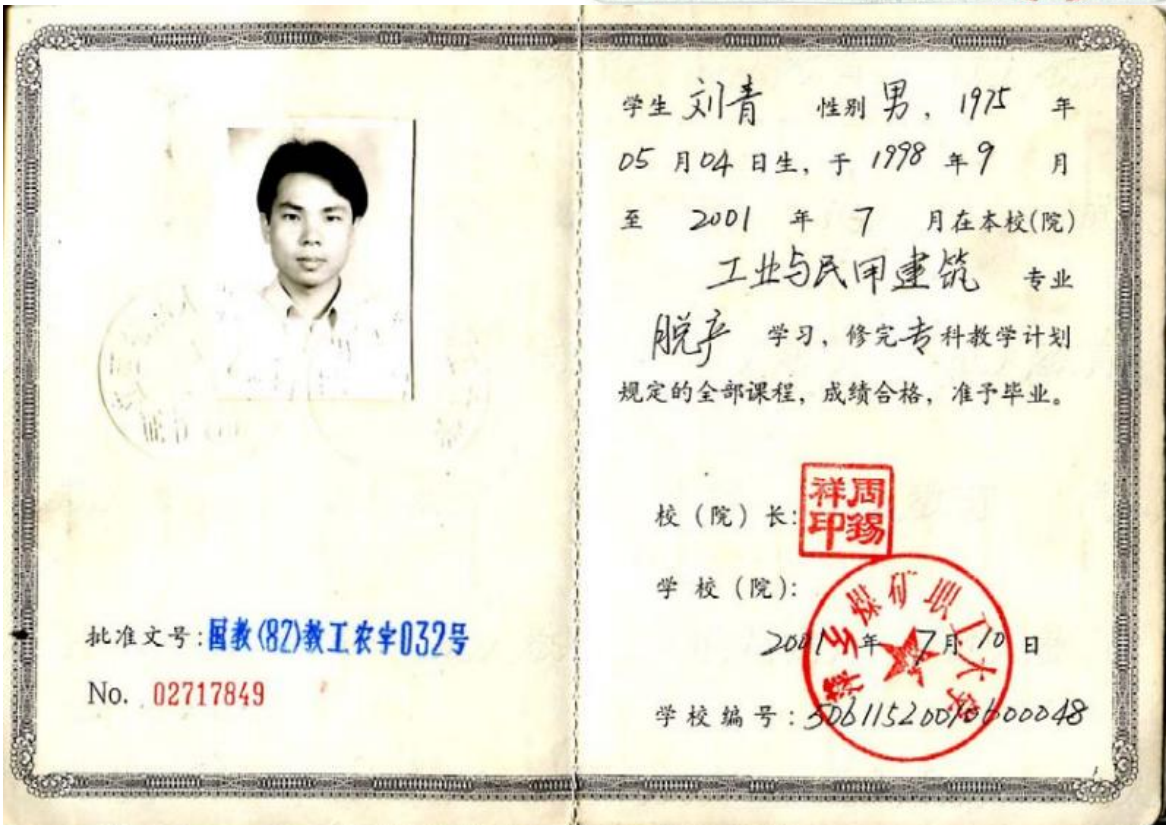 批准文号:国教(82)教工农字032号
No. 02717849
学生 刘青 性别 男, 1975 年
05 月 04 日生, 于 1998 年 9 月
至 2001 年 7 月在本校(院)
工业与民用建筑 专业
脱产 学习, 修完专科教学计划
规定的全部课程, 成绩合格, 准予毕业。
校(院)长:
周锡祥印
学校(院):
萍乡煤矿职工大学
2001 年 7 月 10 日
学校编号: